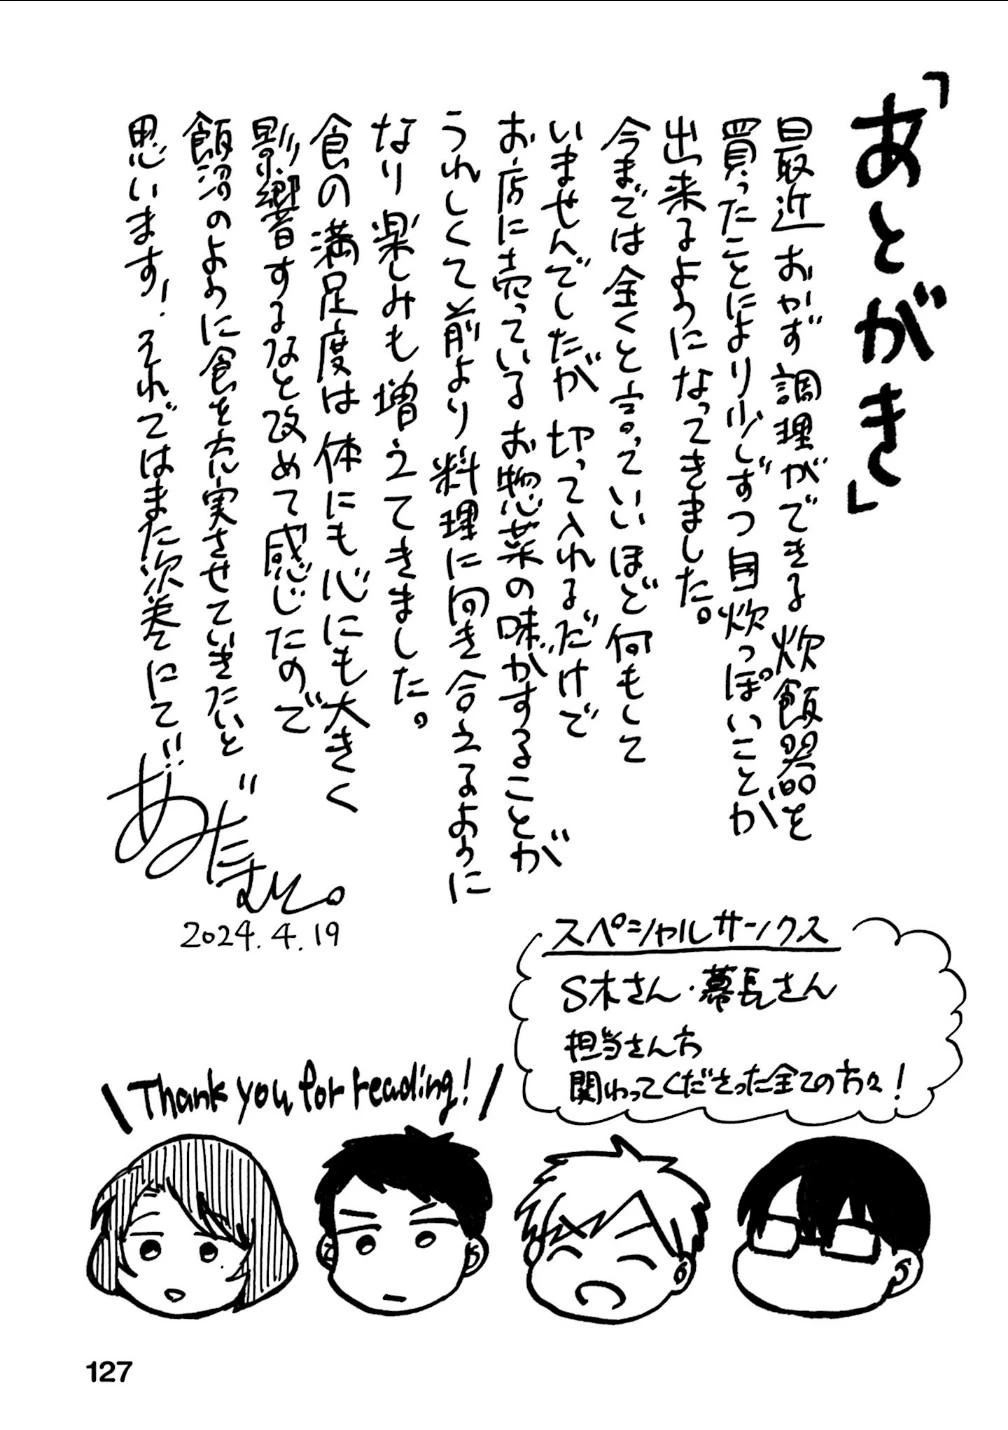 「あとがき」
最近おかず調理ができる炊飯器を
買ったことにより少しずつ自炊っぽいことが
出来るようになってきました。
今までは全くと言っていいほど何もして
いませんでしたが切って入れるだけで
お店に売っているお惣菜の味がすることが
うれしくて前より料理に向き合えるように
なり楽しみも増えてきました。
食の満足度は体にも心にも大きく
影響するなと改めて感じたので
飯沼のように食を充実させていきたいと
思います!それではまた次巻にて!!
あだむ。
2024.4.19
スペシャルサンクス
S木さん・幕長さん
担当さん方
関わってくださった全ての方々!
Thank you for reading!
127